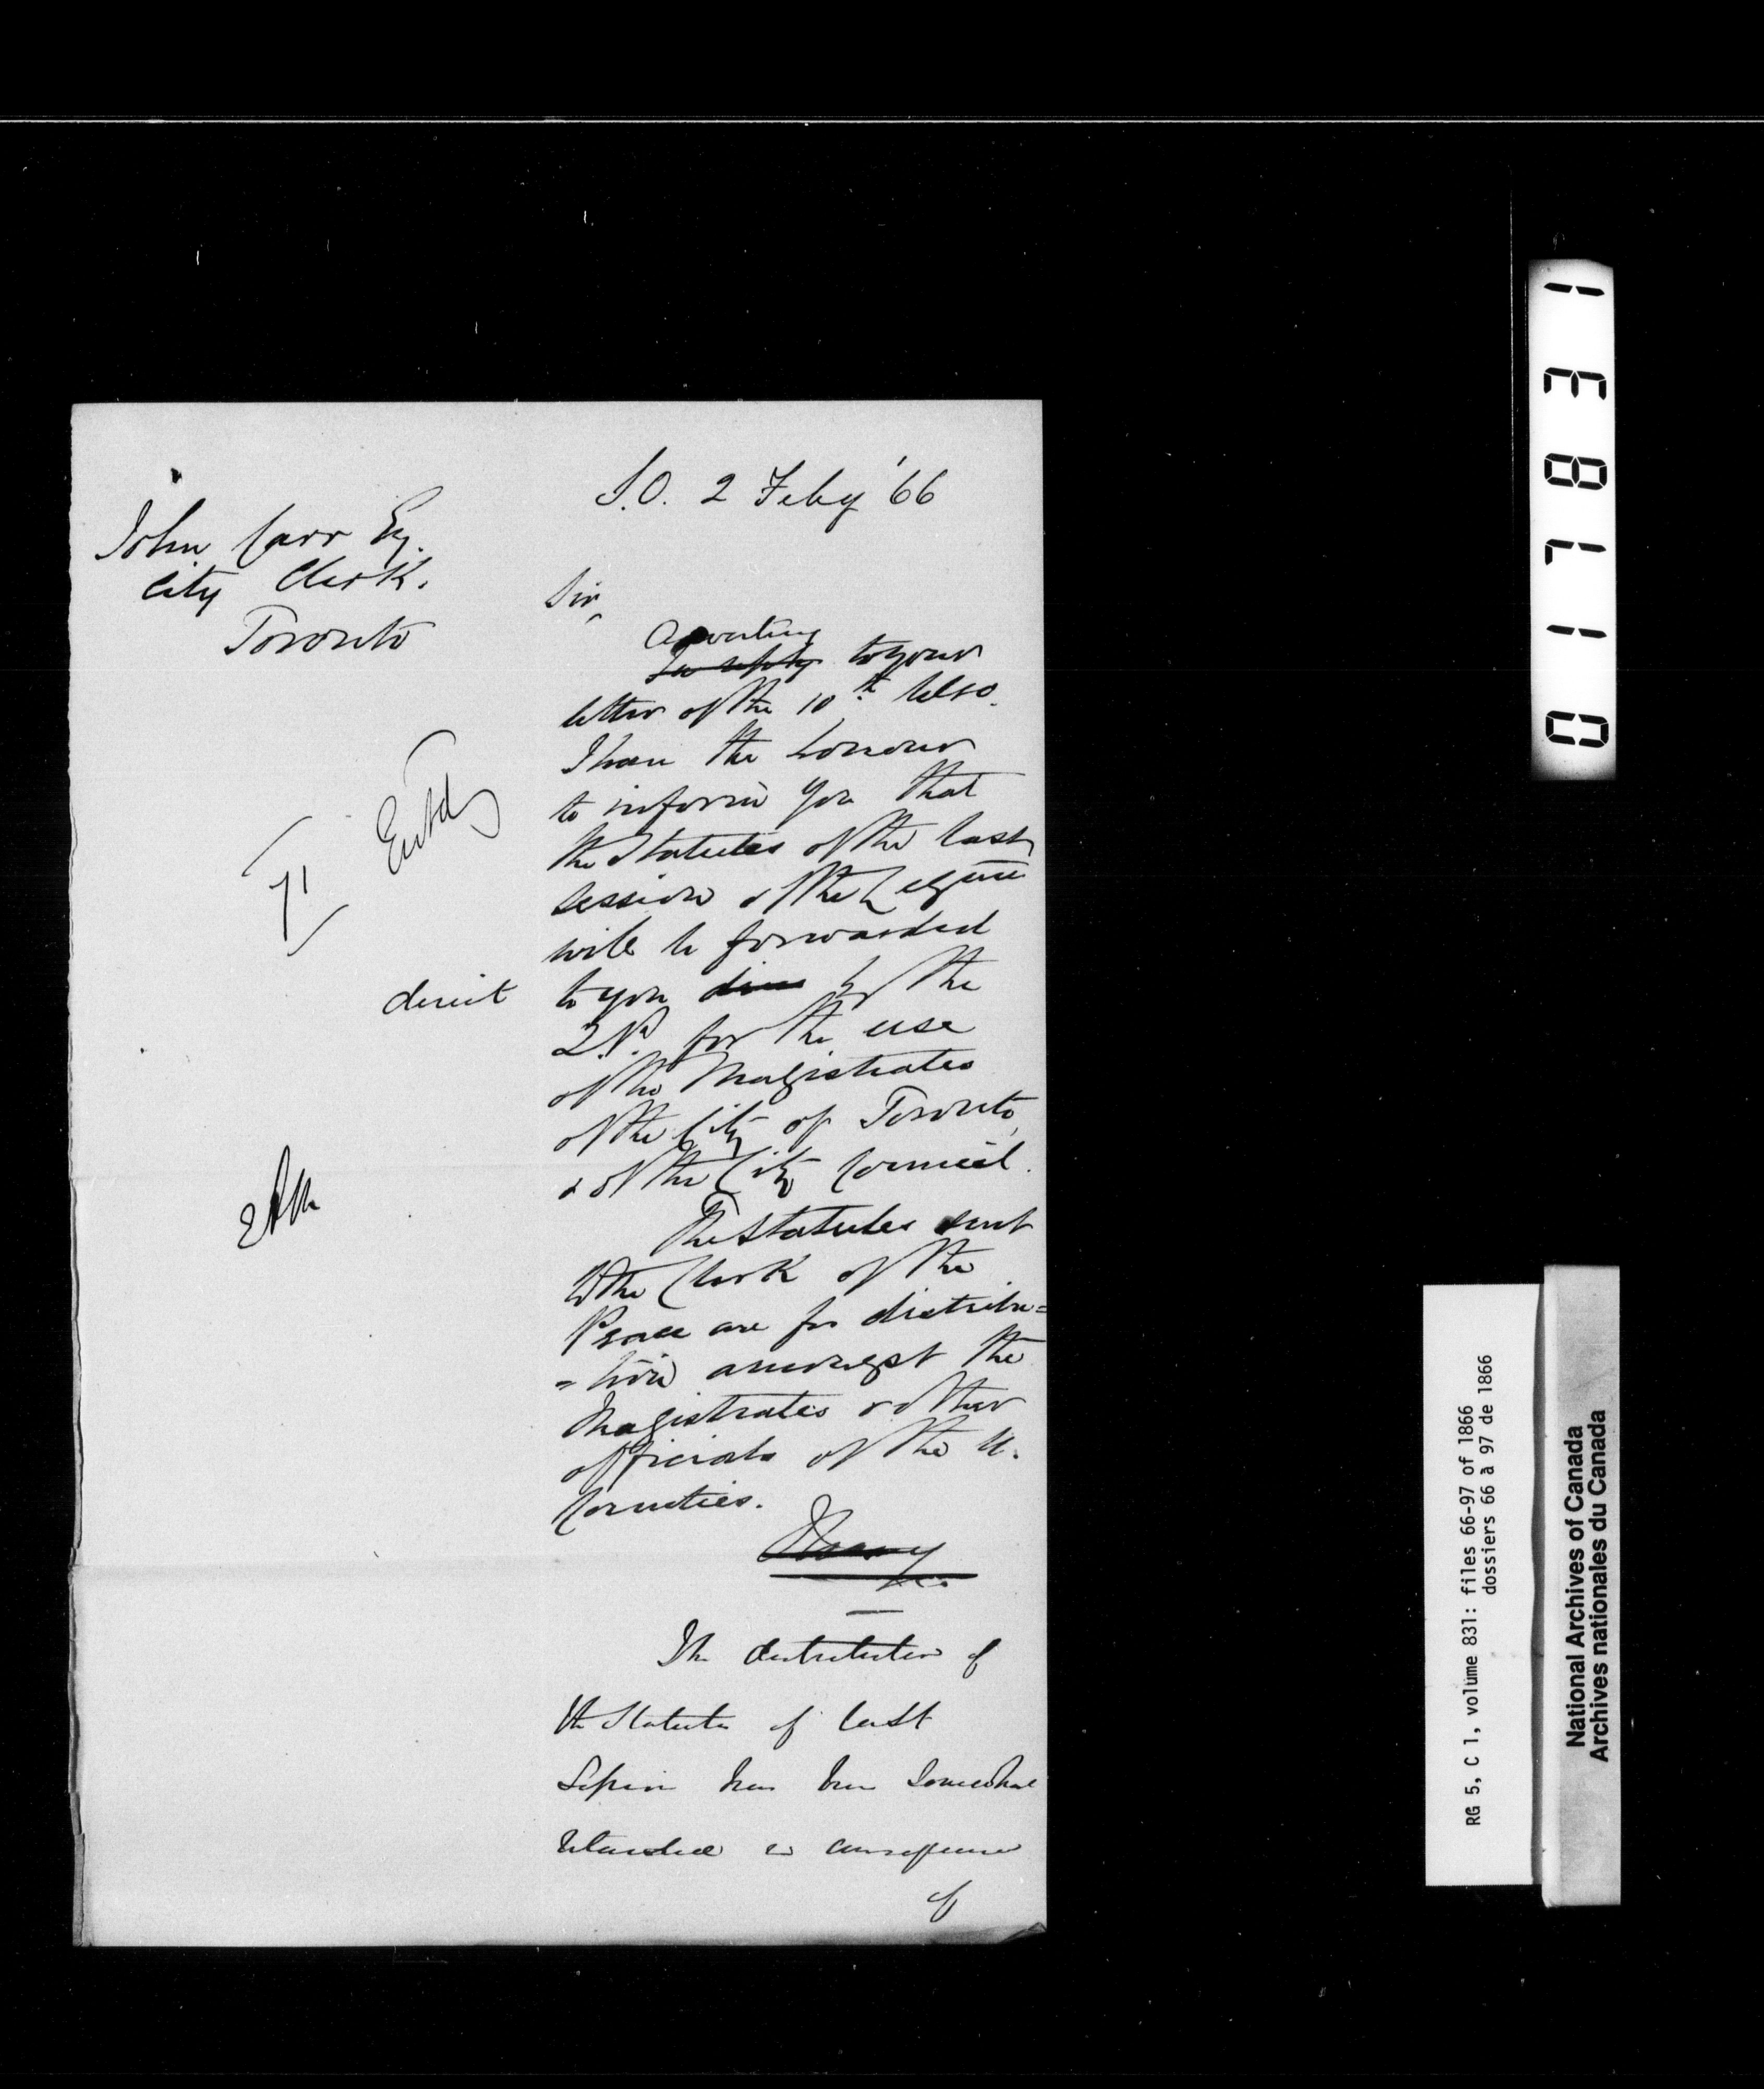 S.O. 2 Feby '66
John Carr Esq.
City Clerk.
Toronto
Sir,
Adverting
In reply to your
letter of the 10th Ulto.
I have the honour
to inform you that
the Statutes of the last
session of the Legure
will be forwarded
to you by the
direct
Q.P. for the use
of the Magistrates
of the City of Toronto,
& of the City Council.
Entd
71
The Statutes sent
to the Clerk of the
Peace are for distribu=
=tion amongst the
Magistrates & other
officials of the U.
Counties.
The distribution of
the Statutes of last
Session has been somewhat
retarded in consequence
of
011831
RG 5, C 1, volume 831: files 66-97 of 1866
dossiers 66 à 97 de 1866
National Archives of Canada
Archives nationales du Canada